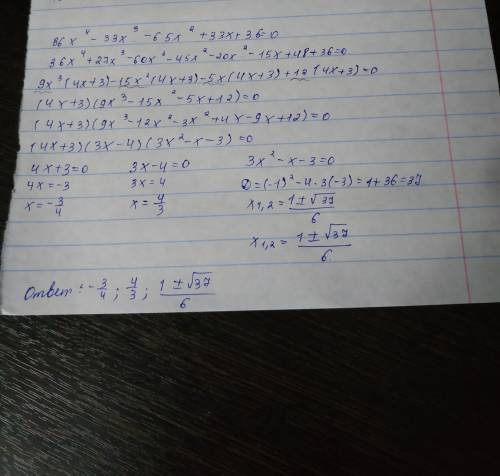 36x⁴ - 33x³ - 65x² + 33x + 36 = 0
36x⁴ + 27x³ - 60x³ - 45x² - 20x² - 15x + 48 + 36 = 0
9x³(4x+3) - 15x²(4x+3) - 5x(4x+3) + 12(4x+3) = 0
(4x+3)(9x³ - 15x² - 5x + 12) = 0
(4x+3)(9x³ - 12x² - 3x² + 4x - 9x + 12) = 0
(4x+3)(3x-4)(3x² - x - 3) = 0
4x+3=0 3x-4=0 3x² - x - 3 = 0
4x = -3 3x = 4 D = (-1)² - 4·3(-3) = 1 + 36 = 37
x = -3/4 x = 4/3 x₁,₂ = (1 ± √37)/6
x₁,₂ = (1 ± √37)/6
Ответ: -3/4; 4/3; (1 ± √37)/6